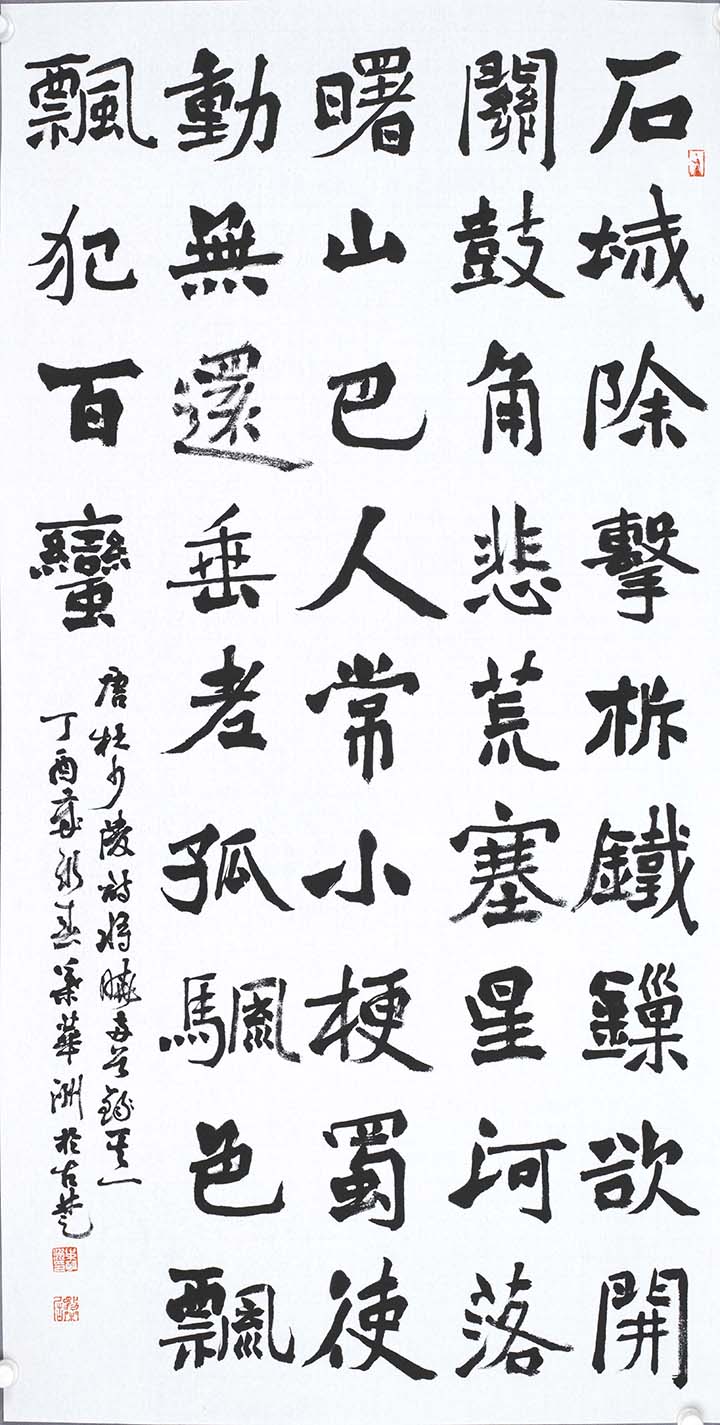 石城除擊柝鐵鏁欲開
關鼓角悲荒塞星河落
曙山巴人常小梗蜀使
動無還垂老孤颿色飄
飄犯百蠻
唐杜少陵詩將曉二首錄其一
丁酉歲春華洲於古楚